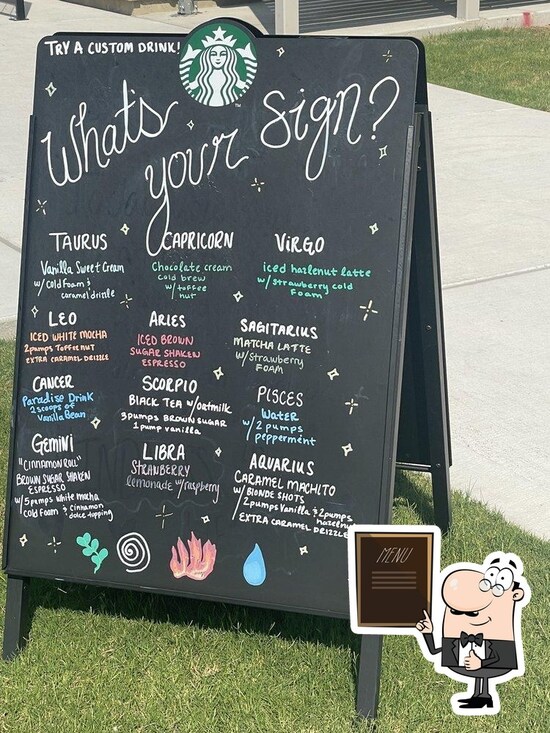 TRY A CUSTOM DRINK!
What's
your Sign?
TAURUS
Vanilla Sweet Cream
w/ Cold Foam &
caramel drizzle
CAPRICORN
Chocolate cream
cold brew
w/ toffee
nut
VIRGO
iced hazlenut latte
w/ strawberry cold
Foam
LEO
ICED WHITE MOCHA
2 pumps TOFFEE NUT
EXTRA CARAMEL DRIZZLE
ARIES
ICED BROWN
SUGAR SHAKEN
ESPRESSO
SAGITARIUS
MATCHA LATTE
w/ Strawberry
FOAM
CANCER
Paradise Drink
2 scoops of
Vanilla Bean
SCORPIO
BLACK TEA w/ oatmilk
3 pumps BROWN SUGAR
1 pump vanilla
PISCES
WATER
w/ 2 pumps
pepperment
GEMINI
"CINNAMON ROLL"
BROWN SUGAR SHAKEN
ESPRESSO
w/ 5 pumps white mocha
Cold Foam & Cinnamon
dolce topping
LIBRA
STRAWBERRY
lemonade w/ raspberry
AQUARIUS
CARAMEL MACHITO
w/ BLONDE SHOTS
2 pumps Vanilla & 2 pumps
hazelnut
EXTRA CARAMEL DRIZZLE
MENU